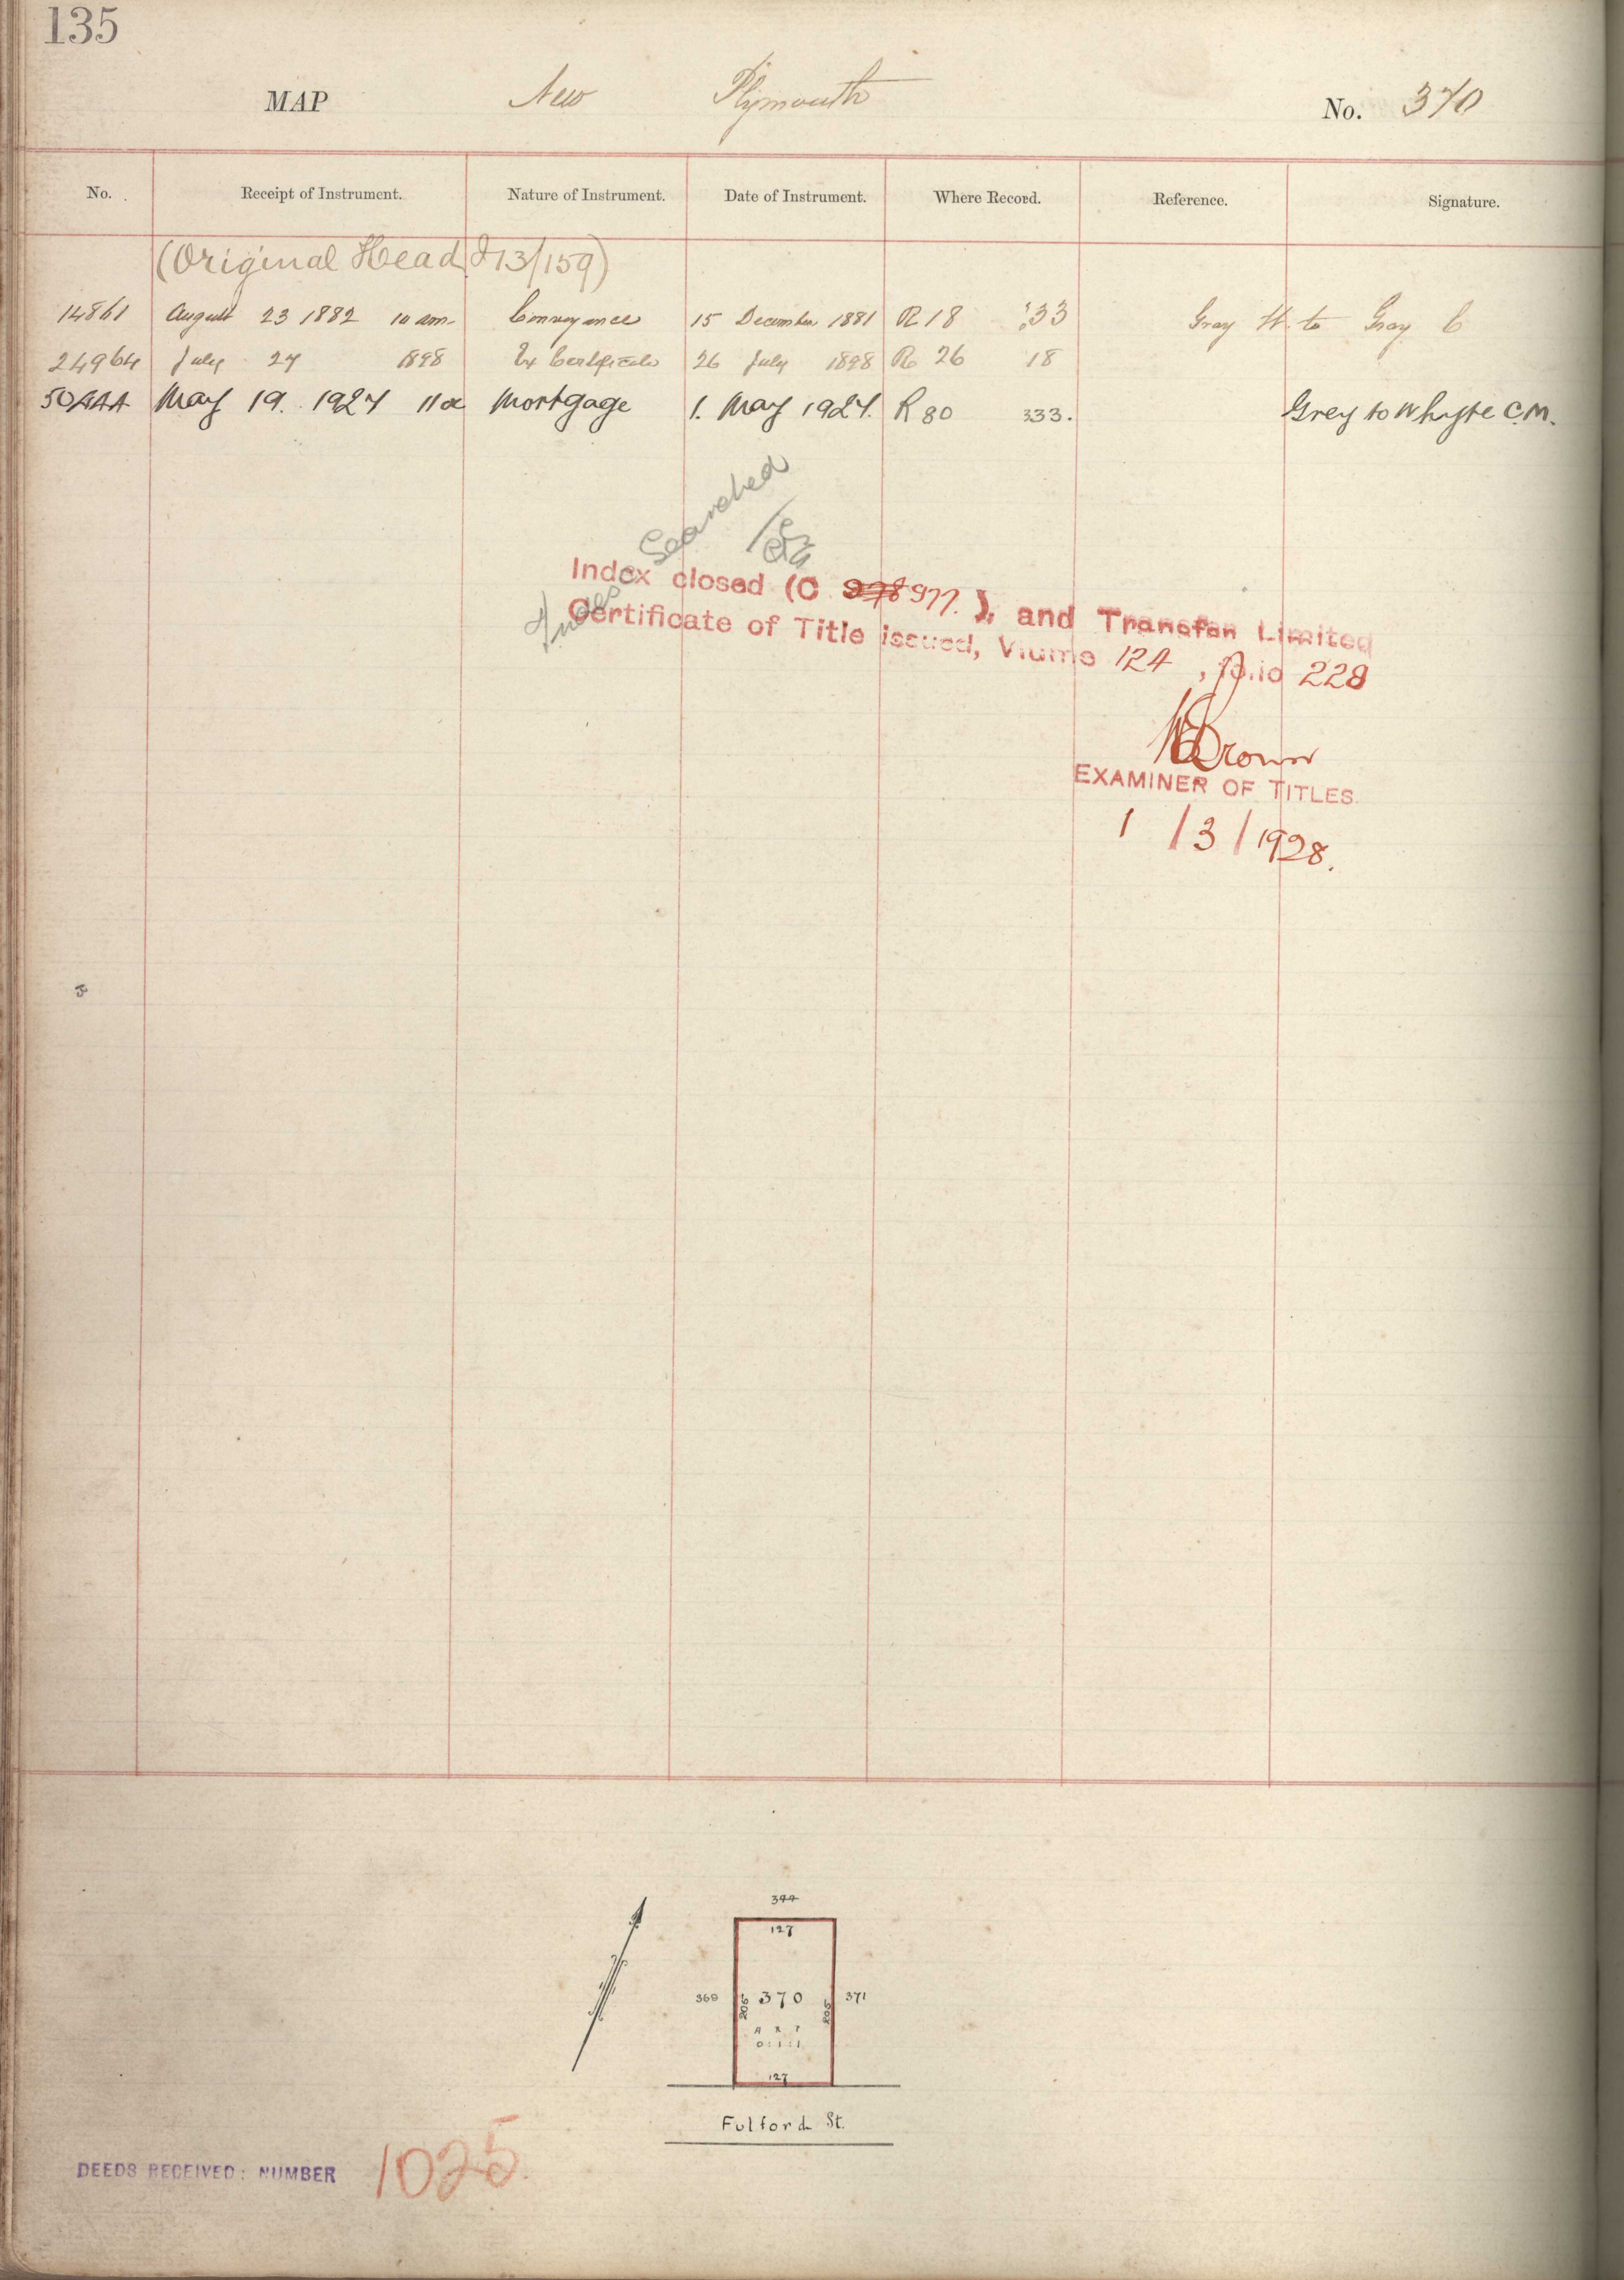 135
MAP New Plymouth No. 370
No. Receipt of Instrument. Nature of Instrument. Date of Instrument. Where Record. Reference. Signature.
(Original Head I 13/159)
14861 August 23 1882 10 am. Conveyance 15 December 1881 R 18 :33 Gray W. to Gray C
24964 July 27 1898 Ex Certificate 26 July 1898 R 26 18
50444 May 19. 1927 11 a Mortgage 1. May 1927. R 80 333. Grey to Whyte C.M.
Index Searched
Index closed (C 978 977. ), and Transfer Limited
Certificate of Title issued, Vlume 124 , Folio 228
Brown
EXAMINER OF TITLES.
1 / 3 / 1928.
344
127
369 205 370 205 371
A R P
0:1:1
127
Fulford St.
DEEDS RECEIVED: NUMBER 1025.